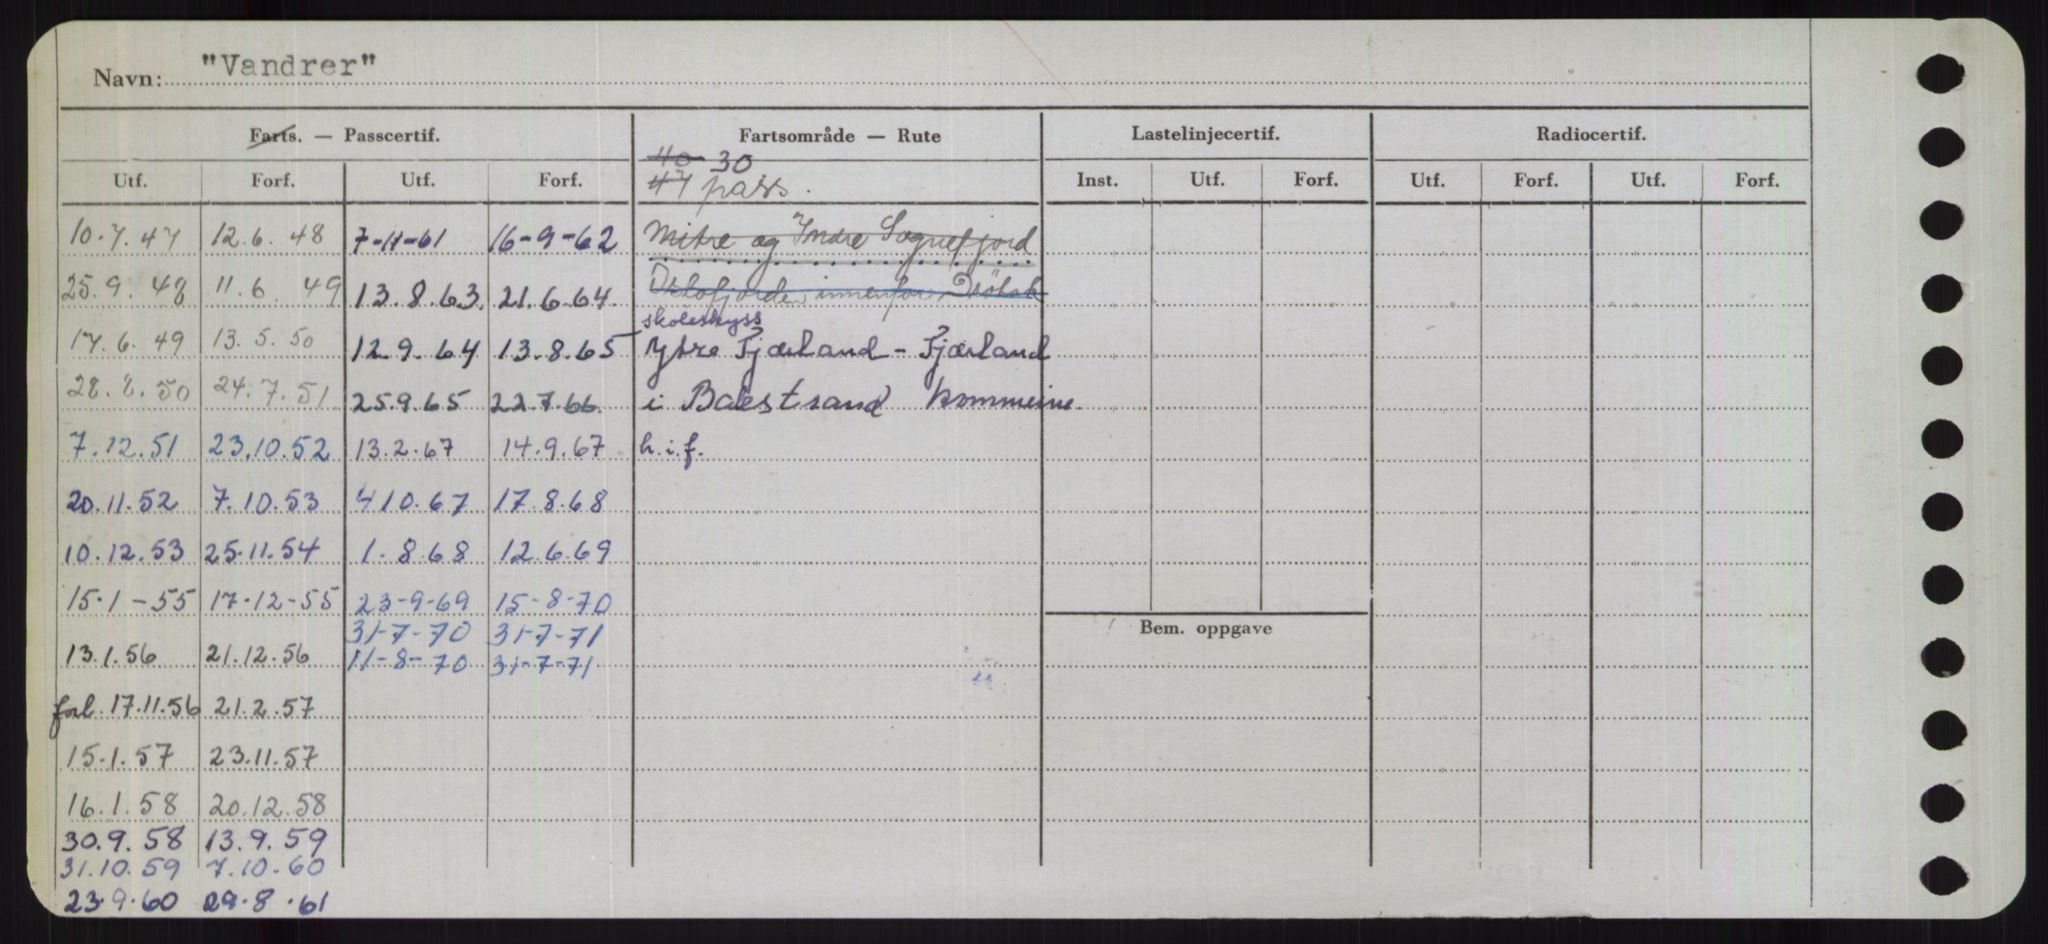 Navn: "Vandrer"
Farts. — Passcertif. Fartsområde — Rute Lastelinjecertif. Radiocertif.
40 30
Utf. Forf. Utf. Forf. 47 pass. Inst. Utf. Forf. Utf. Forf. Utf. Forf.
10.7.47 12.6.48 7-11-61 16-9-62 Mitre og Indre Sognefjord
25.9.48 11.6.49 13.8.63. 21.6.64 Oslofjorden innenfor Dröbak
skoleskyss
17.6.49 13.5.50 12.9.64 13.8.65 Ytre Fjærland - Fjærland
28.8.50 24.7.51 25.9.65 22.7.66. i Balestrand kommune
7.12.51 23.10.52 13.2.67 14.9.67 h.i.f.
20.11.52 7.10.53 4 10.67 17.8.68
10.12.53 25.11.54 1.8.68 12.6.69
15.1-55 17-12-55 23-9-69 15-8-70
31-7-70 31-7-71
13.1.56 21.12.56 11-8-70 31-7-71
Bem. oppgave
forl. 17.11.56 21.2.57
15.1.57 23.11.57
16.1.58 20.12.58
30.9.58 13.9.59
31.10.59 7.10.60
23.9.60 29.8.61